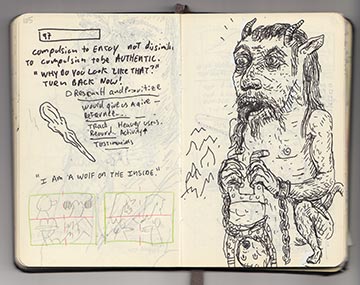 105
97
compulsion to ENJOY not dissimilar
to compulsion to be AUTHENTIC.
"WHY DO YOU LOOK LIKE THAT?"
TURN BACK NOW!
Research and prioritize
would give us a give
Internet
Track Heavy users.
Record Activity
Testimonies
"I AM A WOLF ON THE INSIDE"